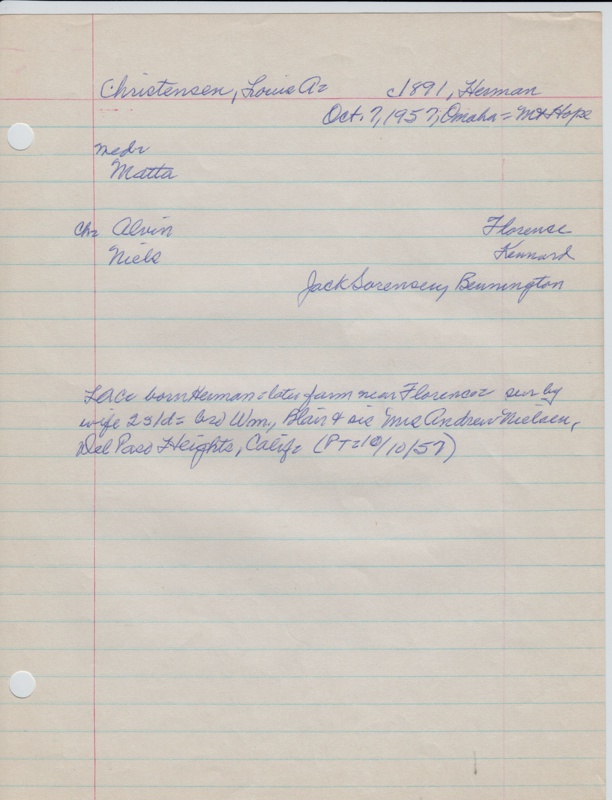 Christensen, Louis A= c1891, Herman
Oct. 7, 1957, Omaha = Mt Hope
medr
Matta
ch= Alvin Florense
Niels Kennard
Jack Sorensen, Bennington
LAC= born Herman = later farm near Florence= sur by
wife 2s1d= bro Wm, Blair & sis Mrs Andrew Nielsen,
Del Paso Heights, Calif= (PT=10/10/57)